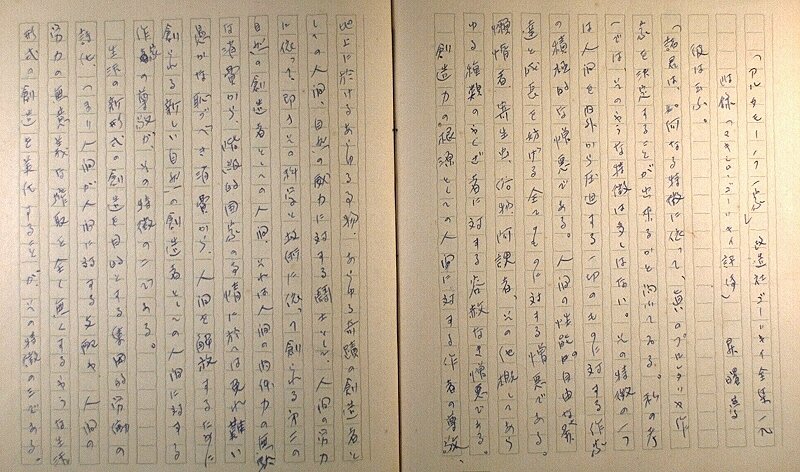 「アルタモーノフ一家」 改造社ゴーリキイ全集 一九
附録(マキシム・ゴーリキイ評傳) 昇曙夢
彼は云ふ。
「諸君は、如何なる特徴に依って、真のプロレタリヤ作
家を決定することが出来るかと問うてゐる。私の考
へでは、そのやうな特徴は多くはない。その特徴の一つ
は人間を内外から圧迫する一切のものに対する作家
の積極的な憎悪である。人間の性能の自由な発
達と成長を妨げる全てのものに対する憎悪である。
懶惰者、寄生虫、俗物、阿諛者、その他概してあら
ゆる種類のやくざ者に対する容赦なき憎悪である。
創造力の根源としての人間に対する作者の尊敬、
地上に於けるあらゆる事物、あらゆる奇蹟の創造者と
しての人間、自然の威力に対する闘士として、人間の労力
に依って、即ちその科学と技術に依って創られる第二の
自然の創造者としての人間、それは人間の肉体力の無益
な浪費から、階級的国家の事情に於ては免れ難い
愚かな恥づべき浪費から、人間を解放するために
創られる新しい自然の創造者としての人間に対する
作家の尊敬が、その特徴の二である。
生活の新形式の創造を目的とする集団的労働の
詩化、つまり人間が人間に対する支配や人間の
労力の無意義な搾取を全く無くするやうな生活
形式の創造を美化することが、その特徴の三である。